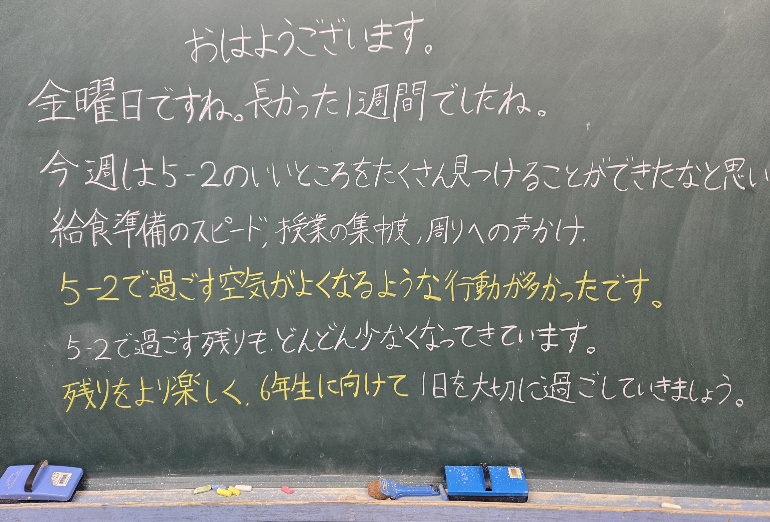 おはようございます。
金曜日ですね。長かった1週間でしたね。
今週は5-2のいいところをたくさん見つけることができたなと思い
給食準備のスピード,授業の集中度,周りへの声かけ.
5-2で過ごす空気がよくなるような行動が多かったです。
5-2で過ごす残りも、どんどん少なくなってきています。
残りをより楽しく、6年生に向けて 1日を大切に過ごしていきましょう。